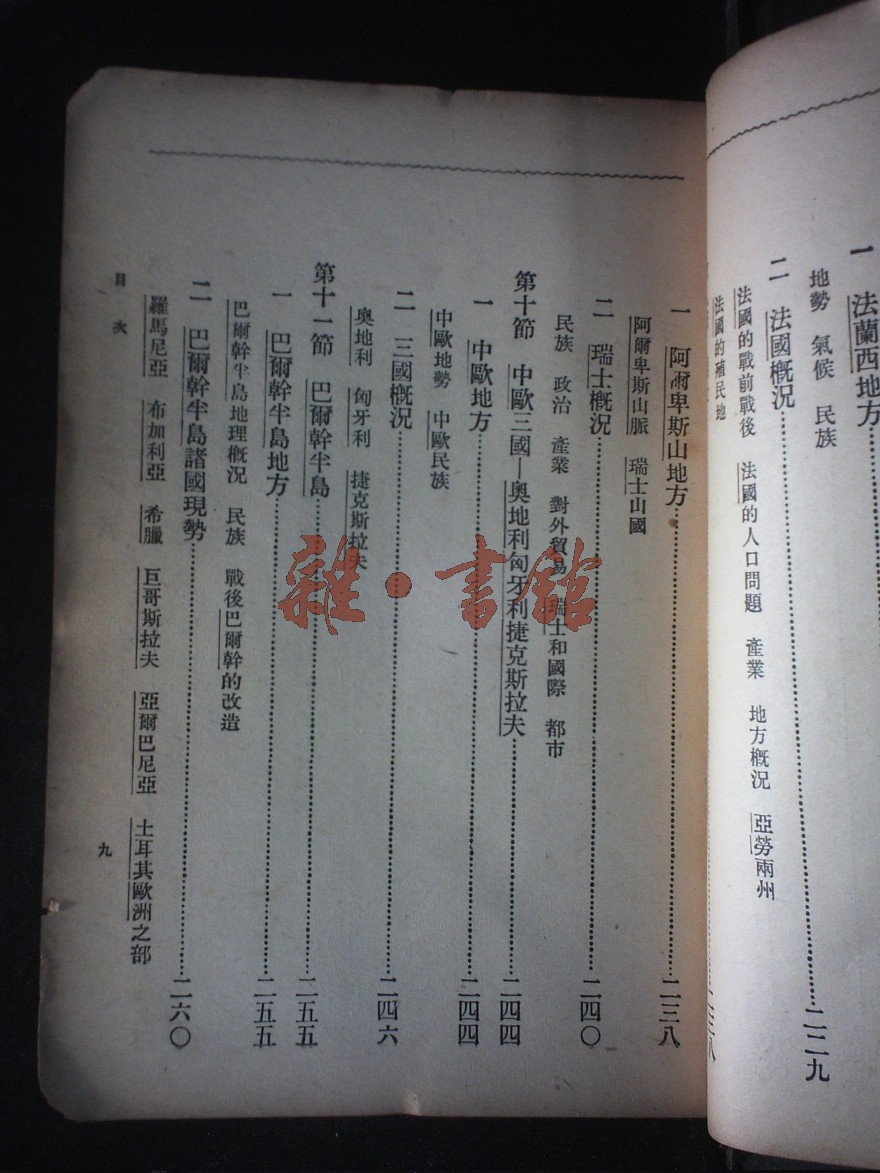 一 法蘭西地方
地勢 氣候 民族
二 法國概況……二二九
法國的戰前戰後 法國的人口問題 產業 地方概況 亞勞兩州
法國的殖民地
一 阿爾卑斯山地方……二三八
阿爾卑斯山脈 瑞士山國
二 瑞士概況……二四〇
民族 政治 產業 對外貿易 瑞士和國際 都市
第十節 中歐三國—奧地利匈牙利捷克斯拉夫……二四四
一 中歐地方……二四四
中歐地勢 中歐民族
二 三國概況……二四六
奧地利 匈牙利 捷克斯拉夫
第十一節 巴爾幹半島……二五五
一 巴爾幹半島地方……二五五
巴爾幹半島地理概況 民族 戰後巴爾幹的改造
二 巴爾幹半島諸國現勢……二六〇
羅馬尼亞 布加利亞 希臘 巨哥斯拉夫 亞爾巴尼亞 土耳其歐洲之部
目次
九
雜·書館